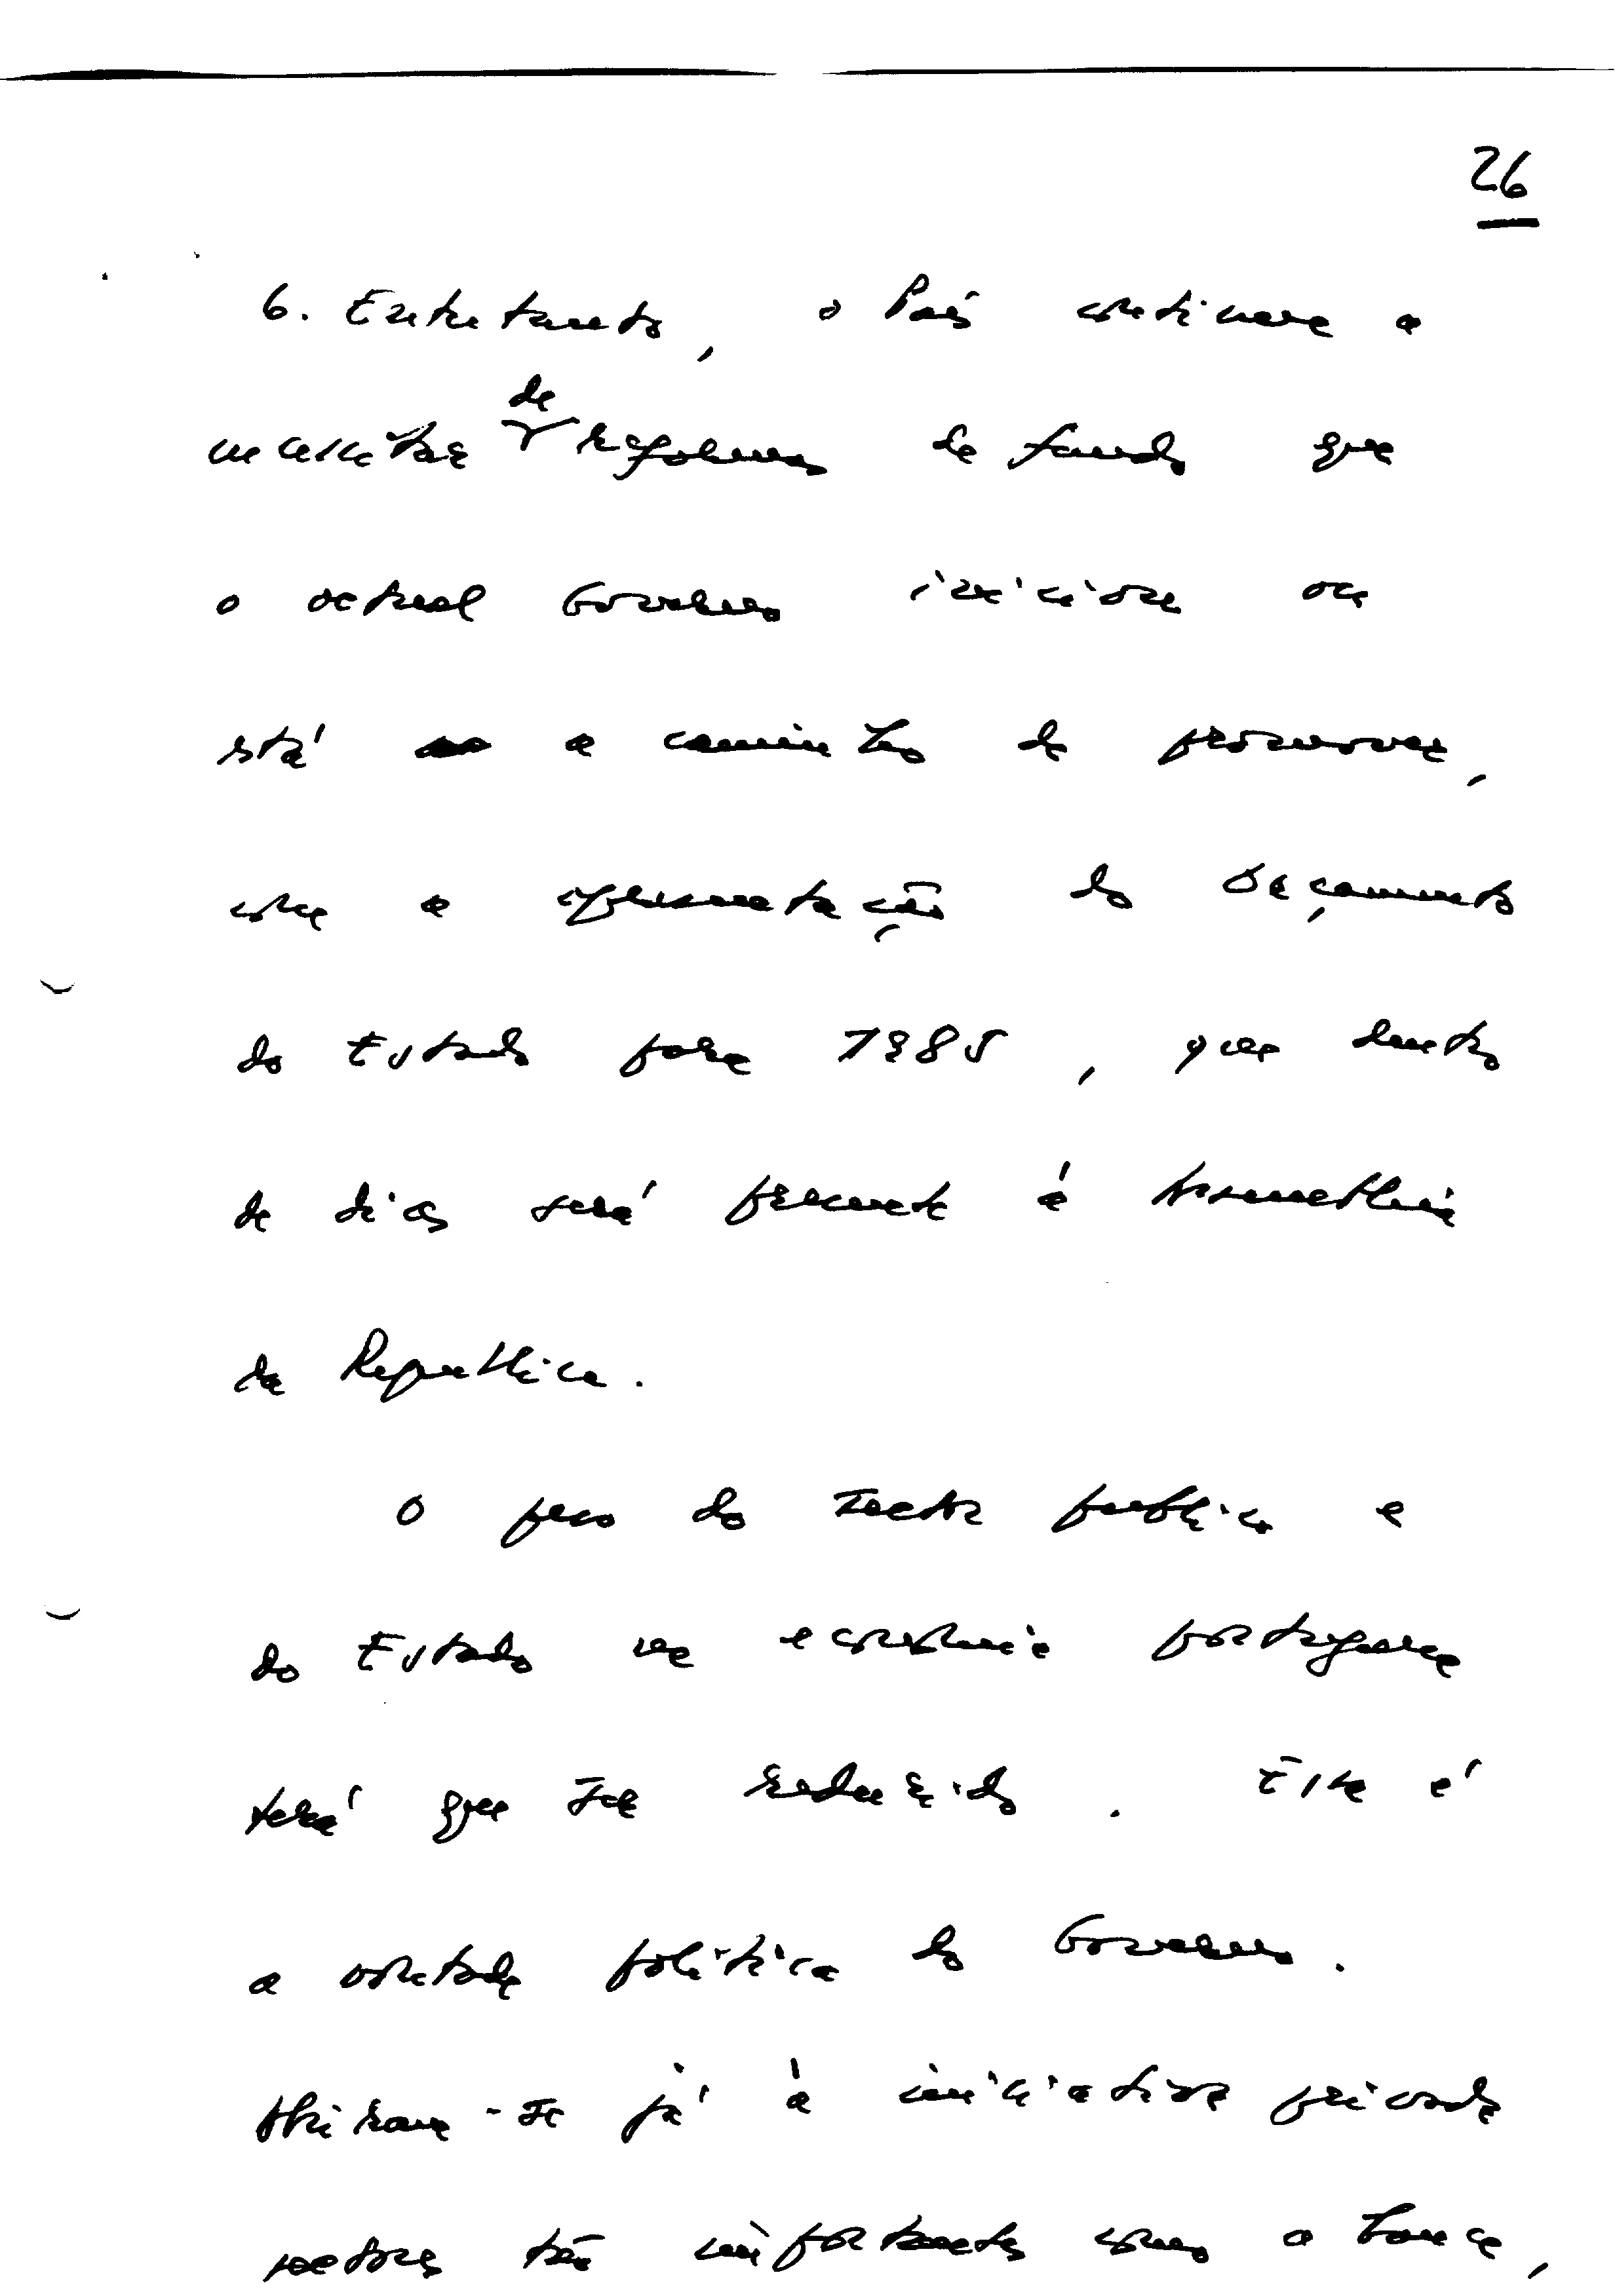 26
6. Entretanto, o País continua a
necessitar de reformas de fundo que
o actual Governo iniciou ou
está a caminho de promover,
com a apresentação do Orçamento
do Estado para 1985, que dentro
de dias será presente à Assembleia
da República.
O peso do sector público e
do Estado na economia portuguesa
terá que ser reduzido. Esta é
a vontade política do Governo.
Abriram-se já à iniciativa privada
sectores tão importantes como a banca,